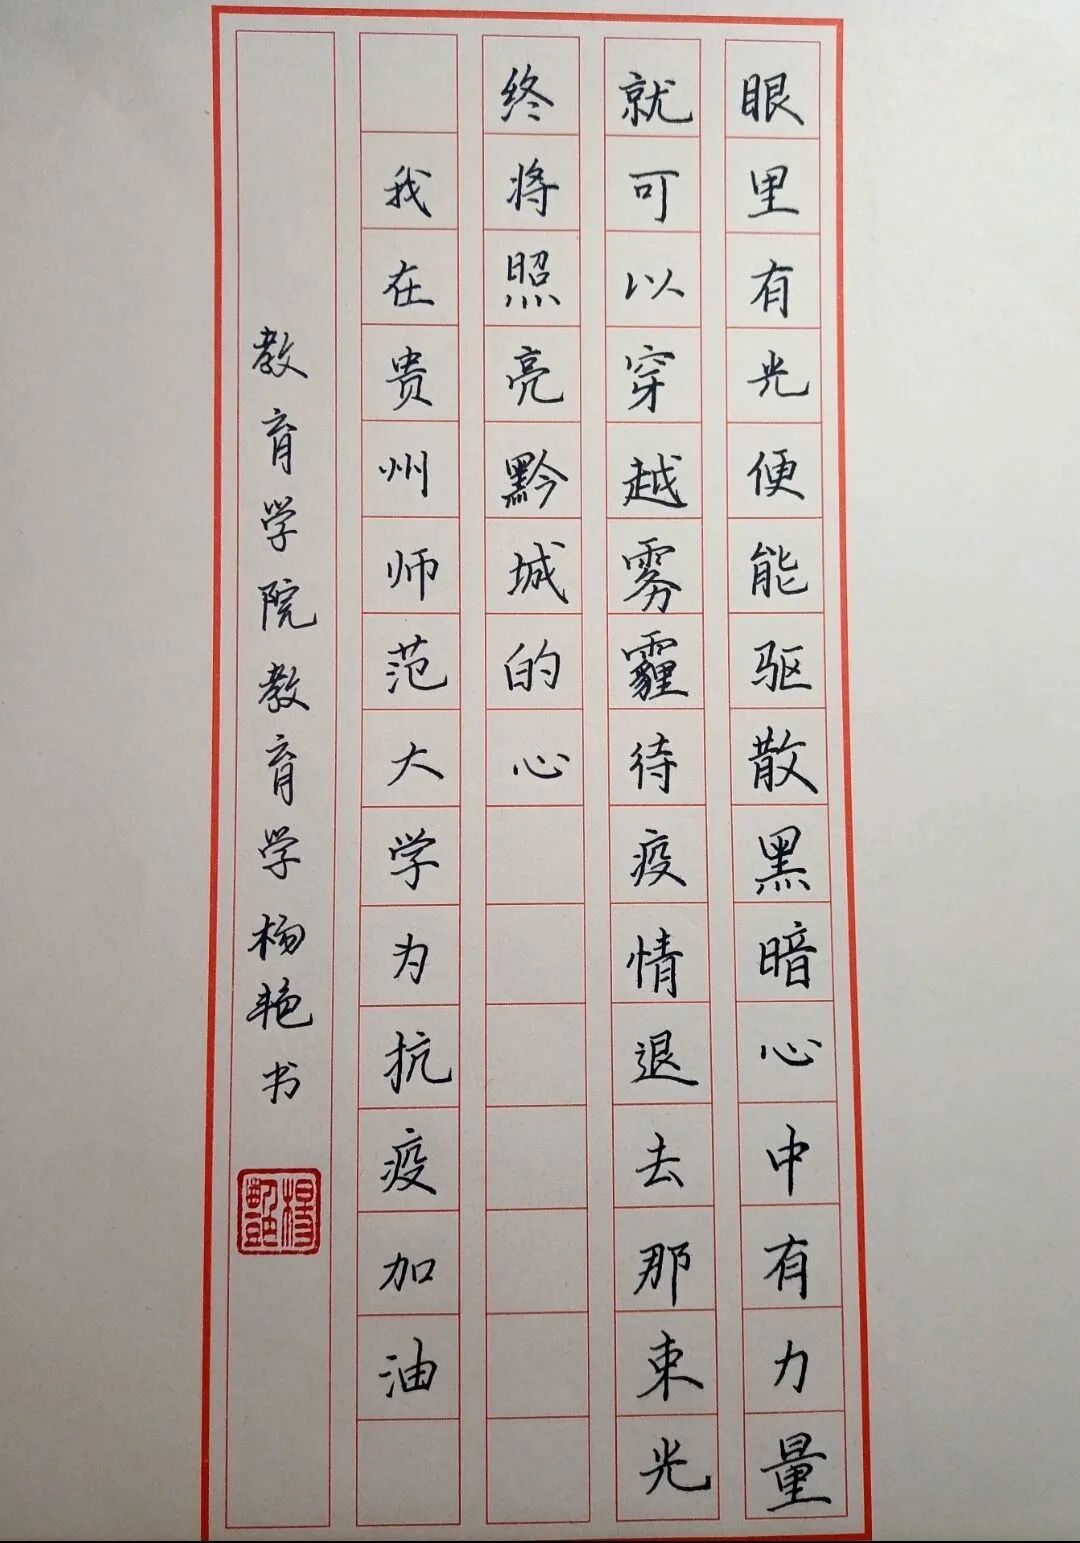 眼里有光便能驱散黑暗心中有力量
就可以穿越雾霾待疫情退去那束光
终将照亮黔城的心
我在贵州师范大学为抗疫加油
教育学院教育学杨艳书
楊艷